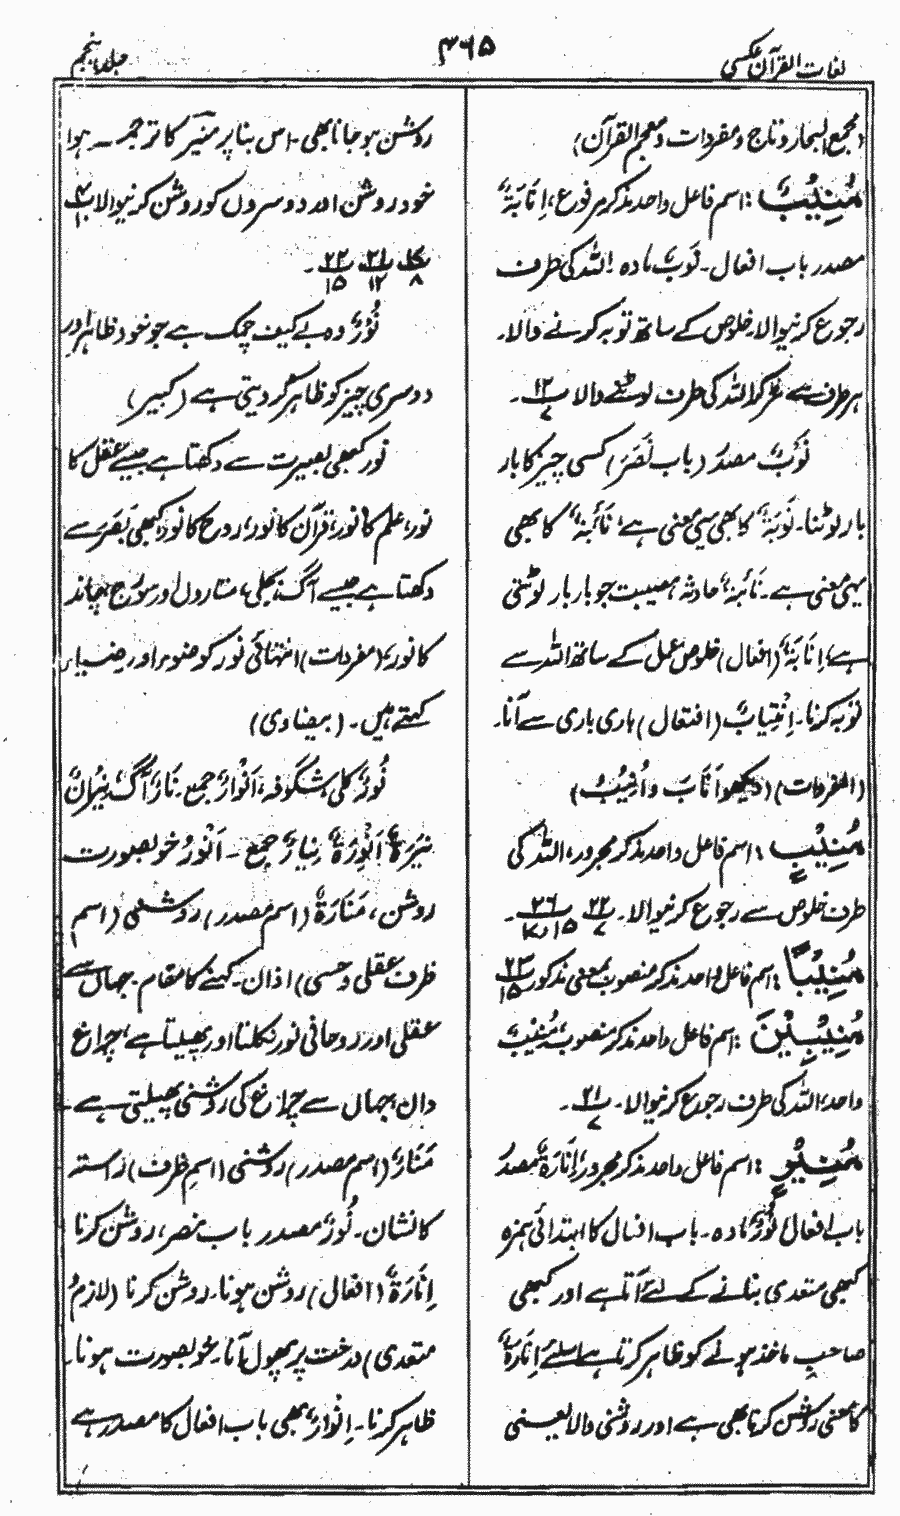 لغات القرآن عکسی
۳۶۵
جلد پنجم
(مجمع البحار و تاج و مفردات و معجم القرآن)
مُنِيْبٌ : اسم فاعل واحد مذکر مرفوع، اِنَابَةٌ
مصدر باب افعال۔ نَوْبٌ مادہ۔ اللہ کی طرف
رجوع کرنیوالا۔ خلوص کے ساتھ توبہ کرنے والا۔
ہر طرف سے مڑ کر اللہ کی طرف لوٹنے والا ۱۲/۷۔
نَوْبٌ مصدر (باب نَصَرَ) کسی چیز کا بار
بار لوٹنا۔ نَوْبَةٌ کا بھی یہی معنی ہے، نَائِبَةٌ کا بھی
یہی معنی ہے۔ نَائِبَةٌ حادثہ، مصیبت جو بار بار لوٹتی
ہے، اِنَابَةٌ (افعال) خلوص عمل کے ساتھ اللہ سے
توبہ کرنا۔ اِنْتِيَابٌ (افتعال) باری باری سے آنا۔
(المفردات) (دیکھو اَنَابَ و اُنِيْبُ)
مُنِيْبٍ : اسم فاعل واحد مذکر مجرور، اللہ کی
طرف خلوص سے رجوع کرنیوالا۔ ۲۲/۷ ۲۶/۱۵ و ۱۷۔
مُنِيْبًا : اسم فاعل واحد مذکر منصوب بمعنی مذکور ۲۳/۱۵
مُنِيْبِيْنَ : اسم فاعل واحد مذکر منصوب، مُنِيْبٌ
واحد، اللہ کی طرف رجوع کرنیوالا۔ ۲۱/۷۔
مُنِيْرٍ : اسم فاعل واحد مذکر مجرور، اِنَارَةٌ مصدر
باب افعال نُوْرٌ مادہ۔ باب افعال کا ابتدائی ہمزہ
کبھی متعدی بنانے کے لئے آتا ہے اور کبھی
صاحبِ ماخذ ہونے کو ظاہر کرتا ہے اسلئے اِنَارَةٌ
کا معنی روشن کرنا بھی ہے اور روشنی والا یعنی
روشن ہو جانا بھی۔ اس بنا پر منیر کا ترجمہ ہوا
خود روشن اور دوسروں کو روشن کرنیوالا ۴/۱۰
۱۷/۸ ۲۱/۱۲ ۲۲/۱۵۔
نُوْرٌ وہ بے کیف چمک ہے جو خود ظاہر اور
دوسری چیز کو ظاہر کر دیتی ہے (کبیر)
نور کبھی بصیرت سے دکھتا ہے جیسے عقل کا
نور، علم کا نور، قرآن کا نور، روح کا نور، کبھی بَصَر سے
دکھتا ہے جیسے آگ، بجلی، ستاروں اور سورج، چاند
کا نور، (مفردات) انتہائی نور کو ضوء اور ضیاء
کہتے ہیں۔ (بیضاوی)
نُوْرٌ کلی، شگوفہ، اَنْوَارٌ جمع۔ نَارٌ آگ، نِيْرَانٌ
نِيَرَةٌ اَنْوِرَةٌ نِيَارٌ جمع۔ اَنْوَرُ خوبصورت
روشن، مَنَارَةٌ (اسم مصدر) روشنی (اسم
ظرف عقلی و حسی) اذان۔ کہنے کا مقام۔ جہاں سے
عقلی اور روحانی نور نکلتا اور پھیلتا ہے، چراغ
دان، جہاں سے چراغ کی روشنی پھیلتی ہے
مَنَارٌ (اسم مصدر) روشنی (اسمِ ظرف) راستہ
کا نشان۔ نُوْرٌ مصدر باب نصر، روشن کرنا
اِنَارَةٌ (افعال) روشن ہونا۔ روشن کرنا (لازم و
متعدی) درخت پر پھول آنا۔ خوبصورت ہونا۔
ظاہر کرنا۔ اِنْوَارٌ بھی باب افعال کا مصدر ہے